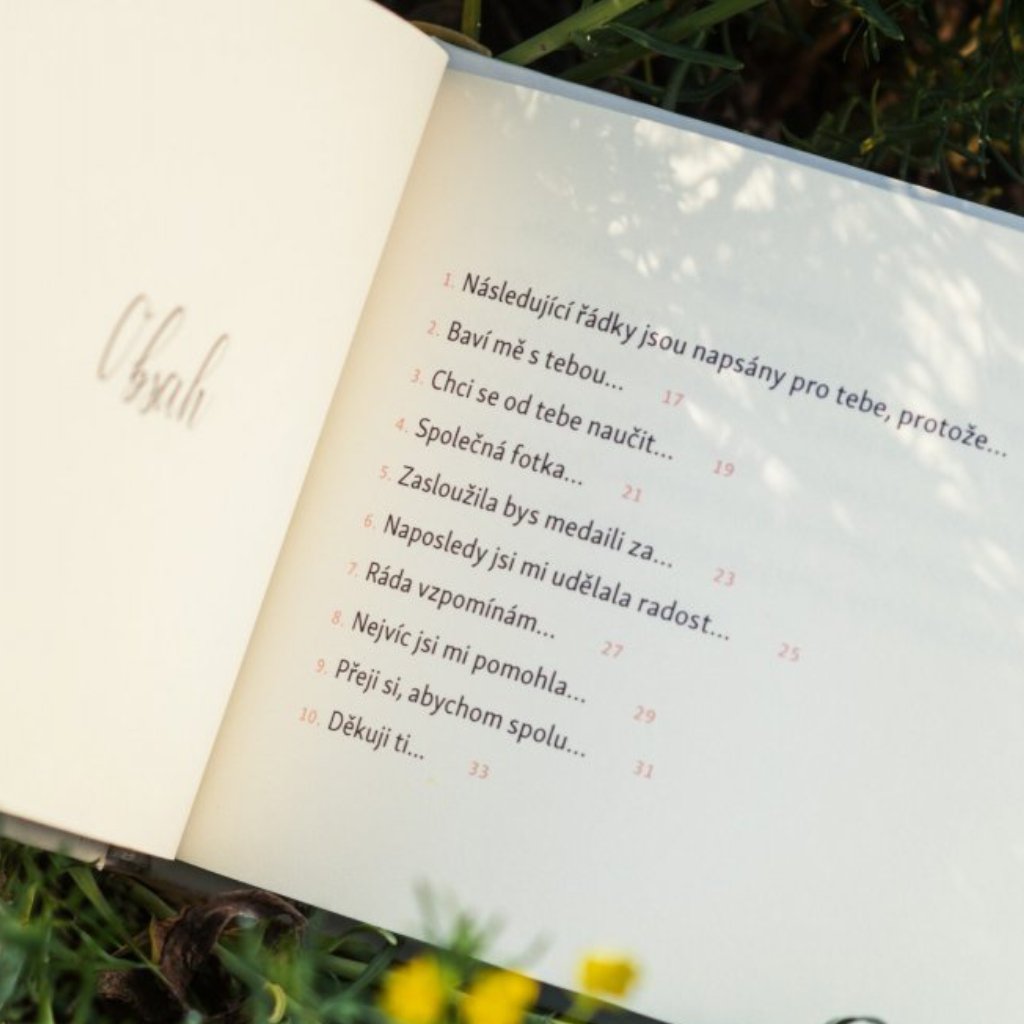 Obsah
1. Následující řádky jsou napsány pro tebe, protože...
2. Baví mě s tebou... 17
3. Chci se od tebe naučit... 19
4. Společná fotka... 21
5. Zasloužila bys medaili za... 23
6. Naposledy jsi mi udělala radost... 25
7. Ráda vzpomínám... 27
8. Nejvíc jsi mi pomohla... 29
9. Přeji si, abychom spolu... 31
10. Děkuji ti... 33